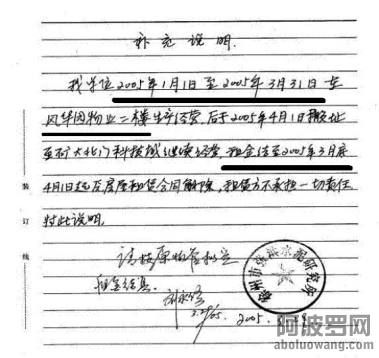 补充说明.
我单位2005年1月1日至2005年3月31日在
风华园物业二楼生产经营,后于2005年4月1日搬址
至 大北门科技城继续经营,租金结至2005年3月底
4月1日起原房屋租赁合同解除,租赁方不承担一切责任
特此说明.
请按原物
租金结算.
2005.
装
订
线
市 水泥研究所
阿波罗网
aboluowang.com